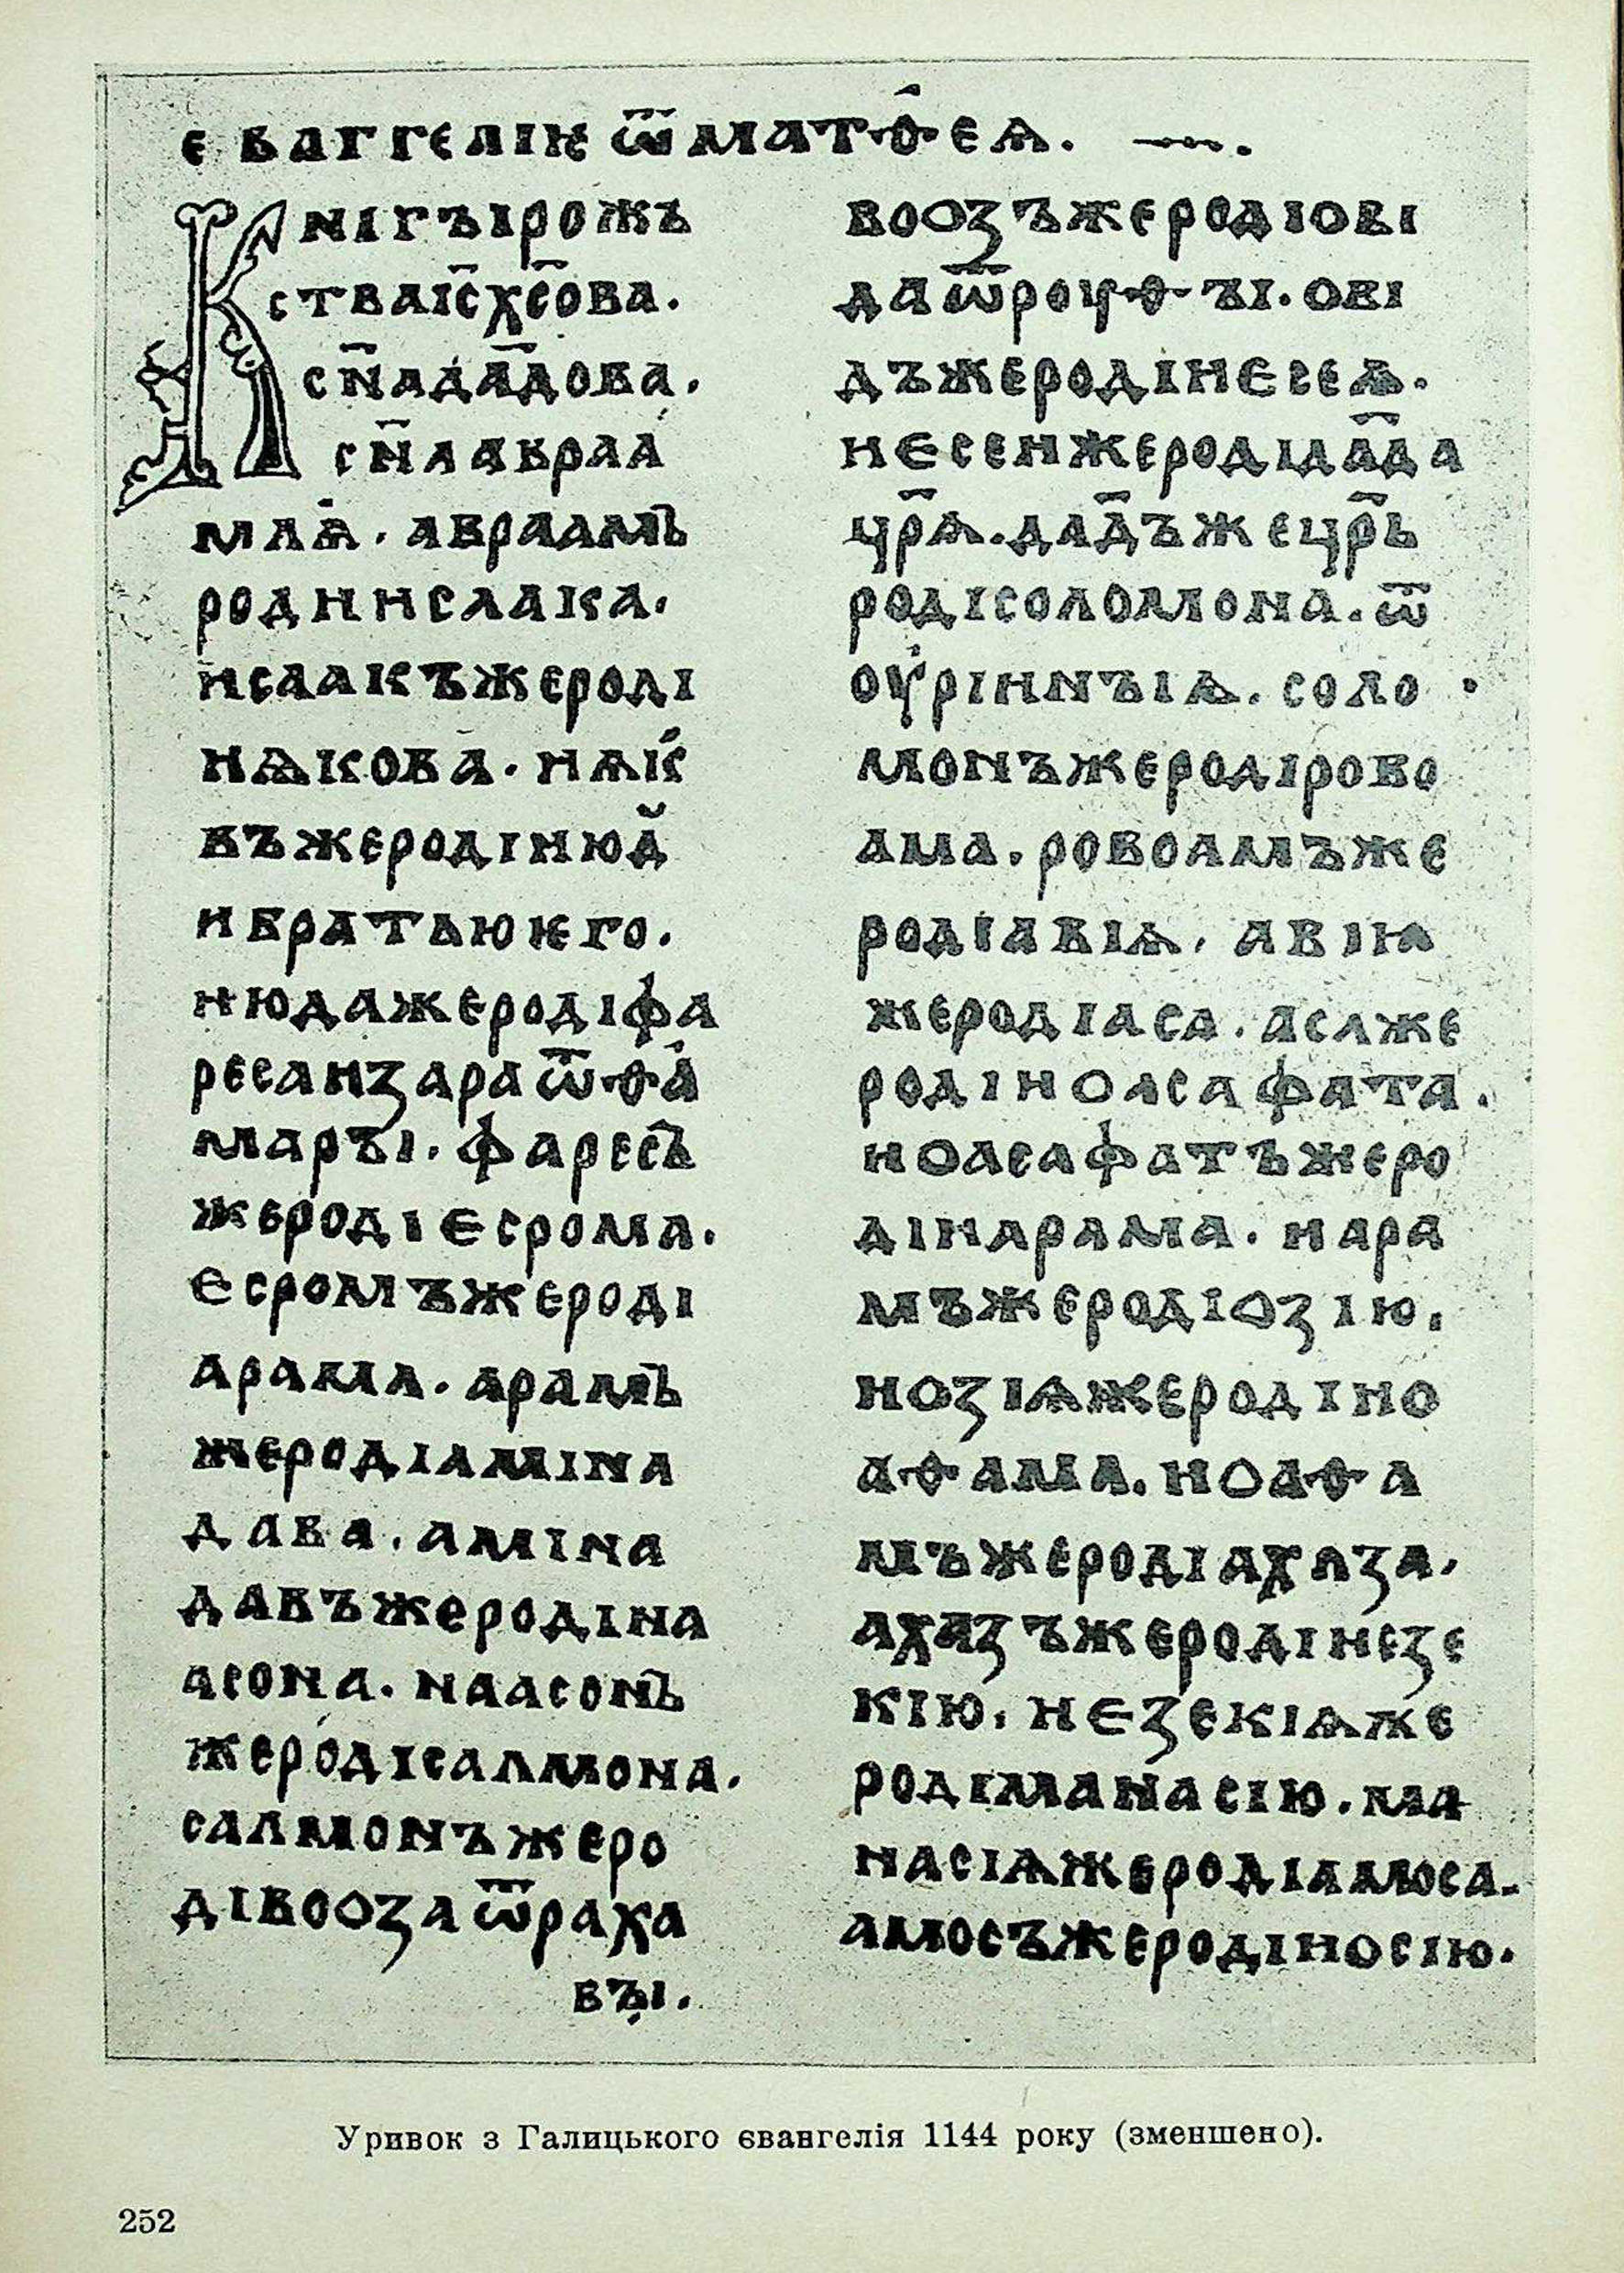 еваггелиѥ ѿ матѳеꙗ. —.
Кнігъірожь
стваіс҃хс҃ова.
сн҃ада҃дова.
сн҃аавраа
млѧ. авраамъ
родиисаака.
исаакъжероді
иꙗкова. иꙗко
въжеродіиюд
ибратьюѥго.
июдажеродіфа
ресаизараѿѳа
маръі. фаресъ
жеродіесрома.
есромъжероді
арама. арамъ
жеродіаміна
дава. аміна
давъжеродіна
асона. наасонъ
жеродісалмона.
салмонъжеро
дівоозаѿраха
въі.
воозъжеродіові
даѿроуѳъі. ові
дъжеродіиесеѧ.
иесеижеродіда҃да
цр҃ѧ. да҃дъжецр҃ь
родісоломона. ѿ
оуріинъіѧ. соло
монъжеродірово
ама. ровоамъже
родіавіѧ. авіꙗ
жеродіаса. асаже
родіиоасафата.
иоасафатъжеро
діиарама. иара
мъжеродіозію.
иозіѧжеродіио
аѳама. иоаѳа
мъжеродіахаза.
ахазъжеродіиезе
кію. иезекіѧже
родіманасію. ма
насіѧжеродіаамоса.
амосъжеродіиосію.
Уривок з Галицького євангелія 1144 року (зменшено).
252